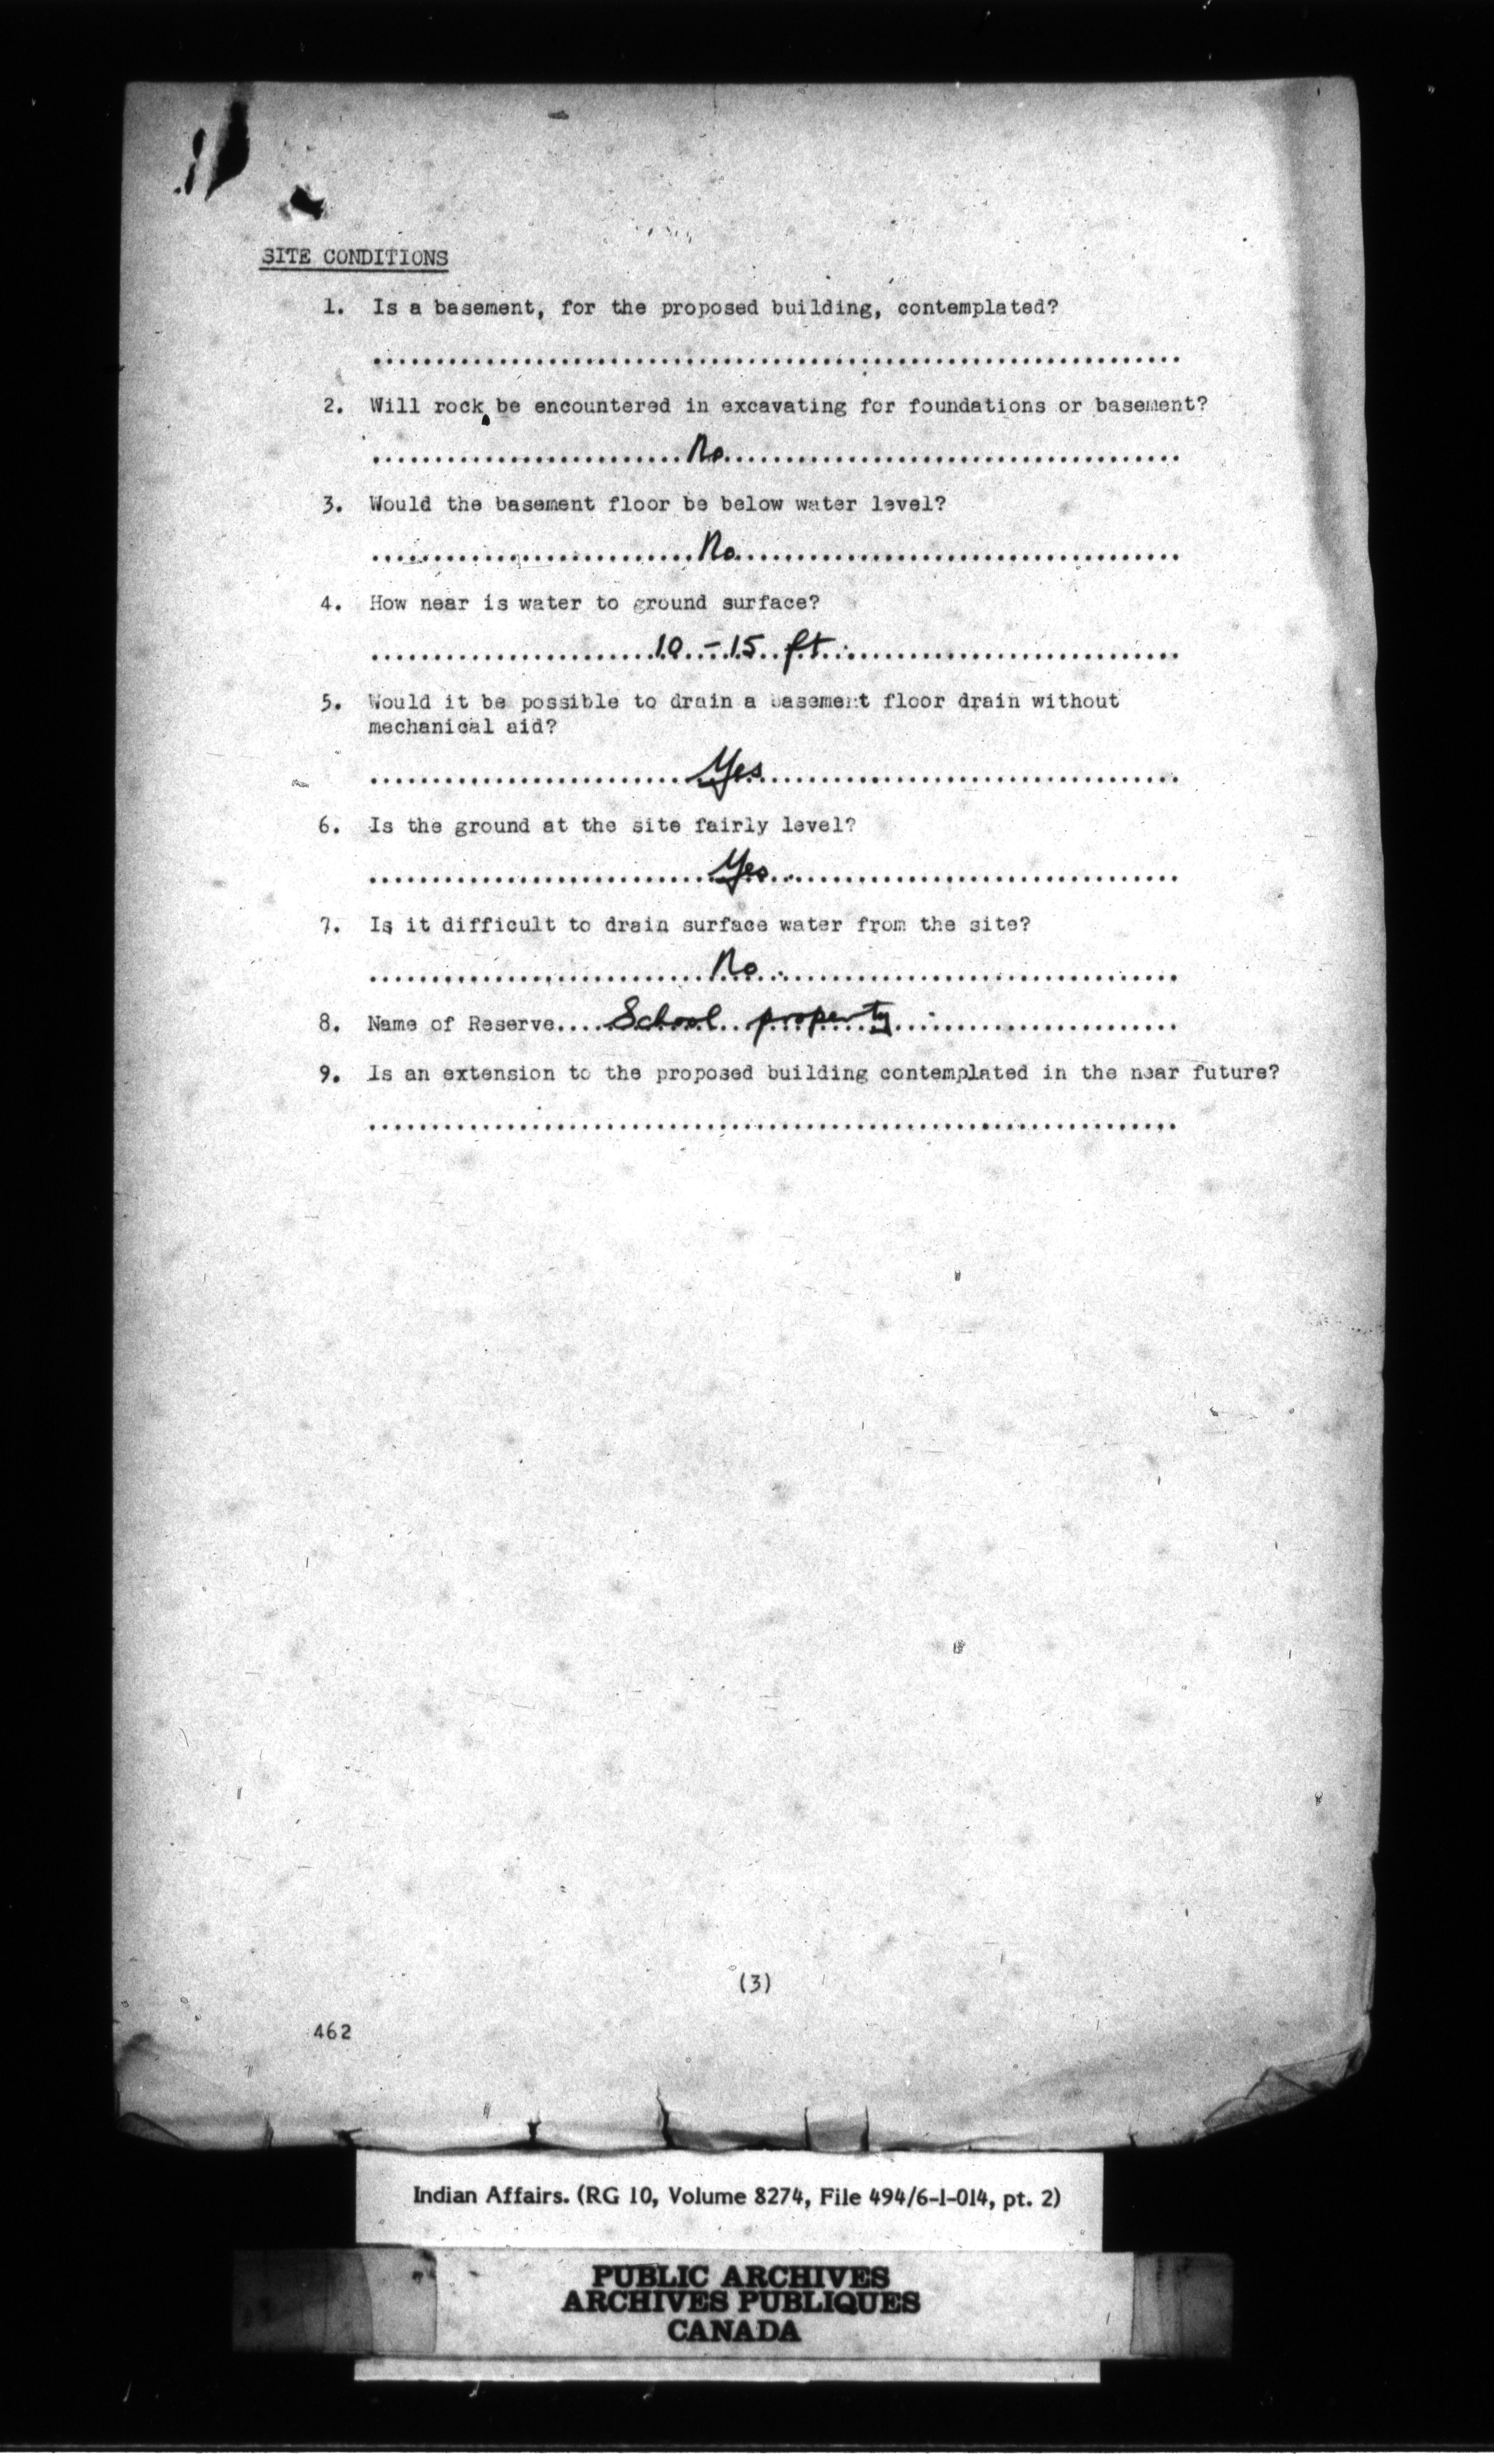 SITE CONDITIONS
1. Is a basement, for the proposed building, contemplated?
................................................................
2. Will rock be encountered in excavating for foundations or basement?
.........................No.....................................
3. Would the basement floor be below water level?
.........................No.....................................
4. How near is water to ground surface?
.......................10 - 15 ft...............................
5. Would it be possible to drain a basement floor drain without
mechanical aid?
.........................Yes....................................
6. Is the ground at the site fairly level?
...........................Yes..................................
7. Is it difficult to drain surface water from the site?
...........................No...................................
8. Name of Reserve....School property.......................
9. Is an extension to the proposed building contemplated in the near future?
................................................................
(3)
462
Indian Affairs. (RG 10, Volume 8274, File 494/6-1-014, pt. 2)
PUBLIC ARCHIVES
ARCHIVES PUBLIQUES
CANADA